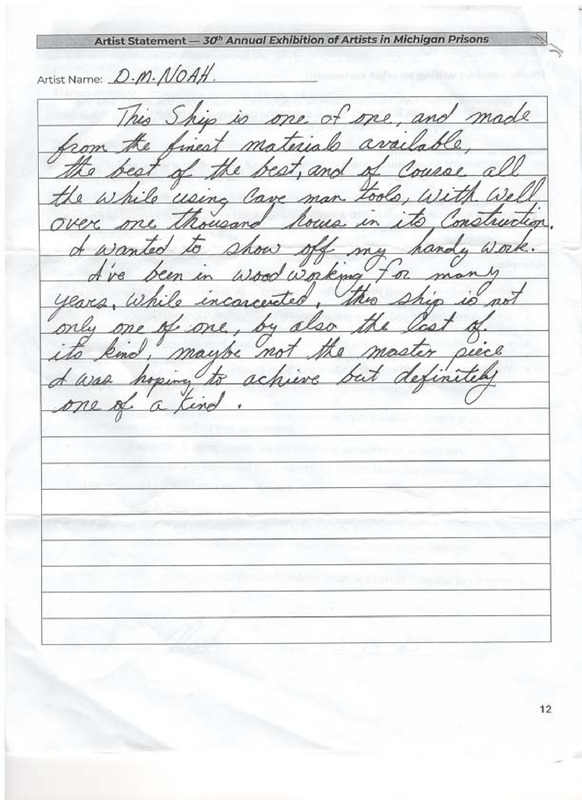 Artist Statement — 30th Annual Exhibition of Artists in Michigan Prisons
Artist Name: D.M. NOAH.
This Ship is one of one, and made
from the finest materials available,
the best of the best, and of course all
the while using cave man tools, with well
over one thousand hours in its Construction.
I wanted to show off my handy work.
I've been in woodworking for many
years, while incarcerted, this ship is not
only one of one, by also the last of
its kind, maybe not the master piece
I was hoping to achieve but definitely
one of a kind.
12